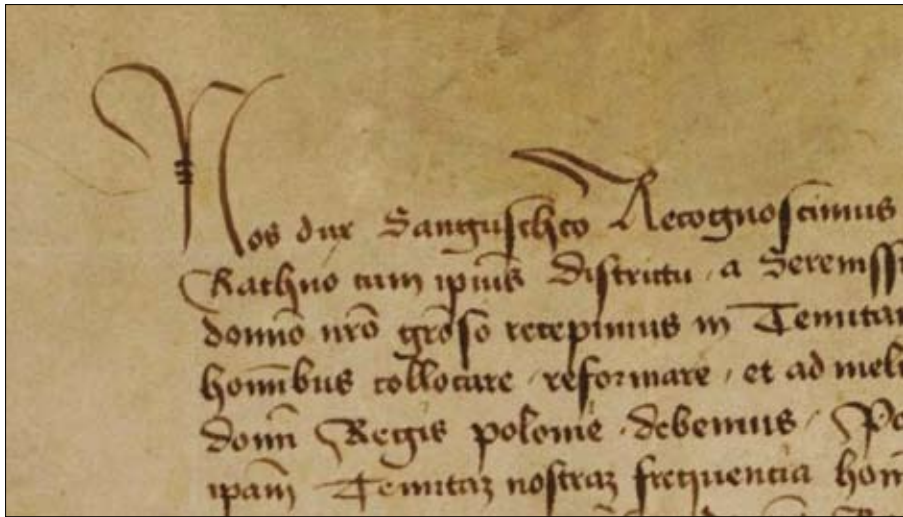 Nos dux Sanguschco Recognoscimus
Rathno cum ipius districtu a Serenissi
domno nro groso recepimus in Tenutam
hominbus collocare reformare et ad meli
domni Regis polonie debemus Po
ipam Tenutaz nostraz frequencia hom